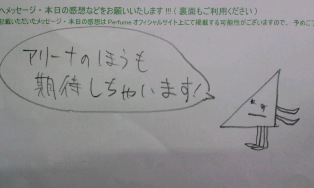 へメッセージ・本日の感想などをお願いいたします!!!(裏面もご利用ください)
記載いただいたメッセージ・本日の感想は Perfume オフィシャルサイト上にて掲載する可能性がございますので、予めご
アリーナのほうも
期待しちゃいます!